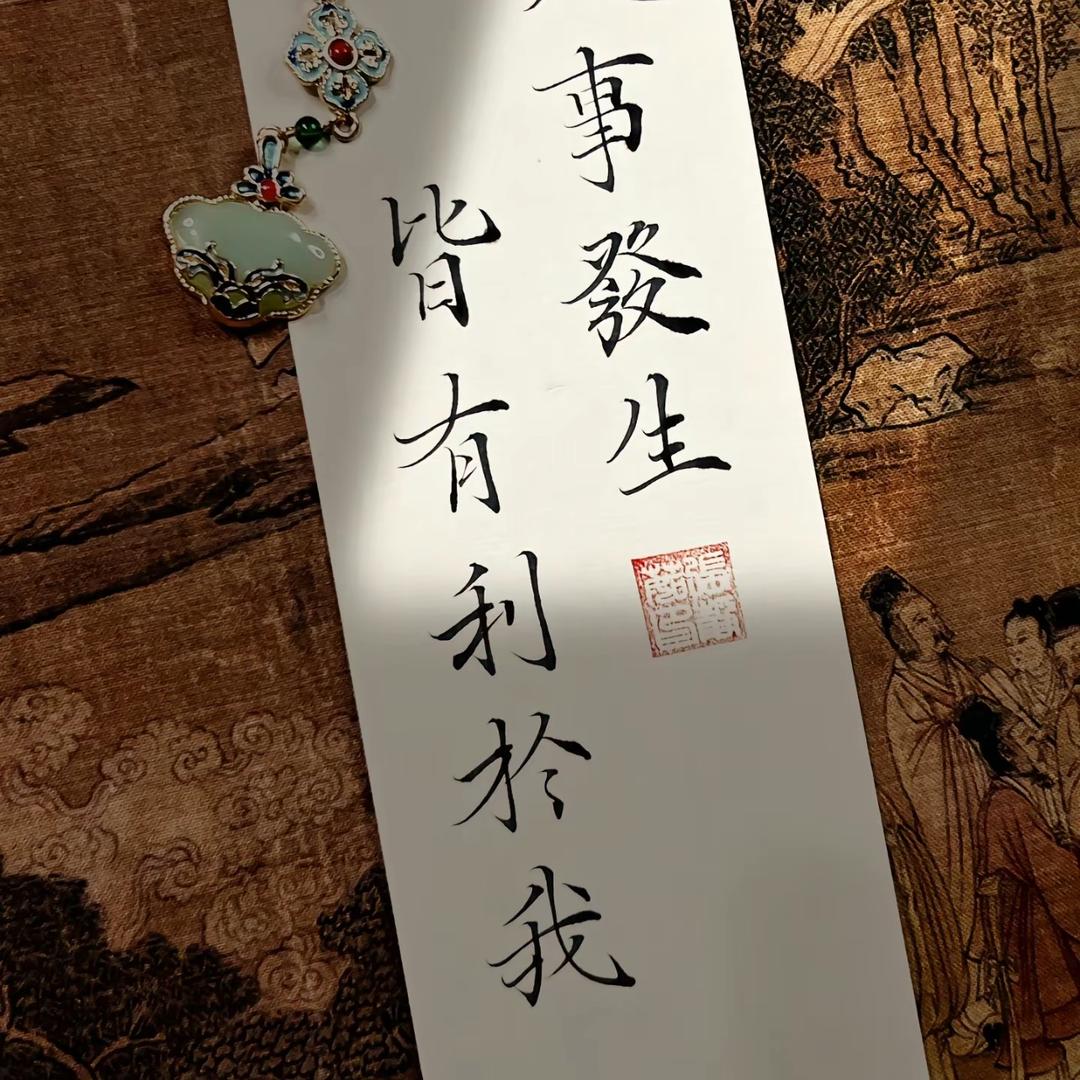 事發生
皆有利於我